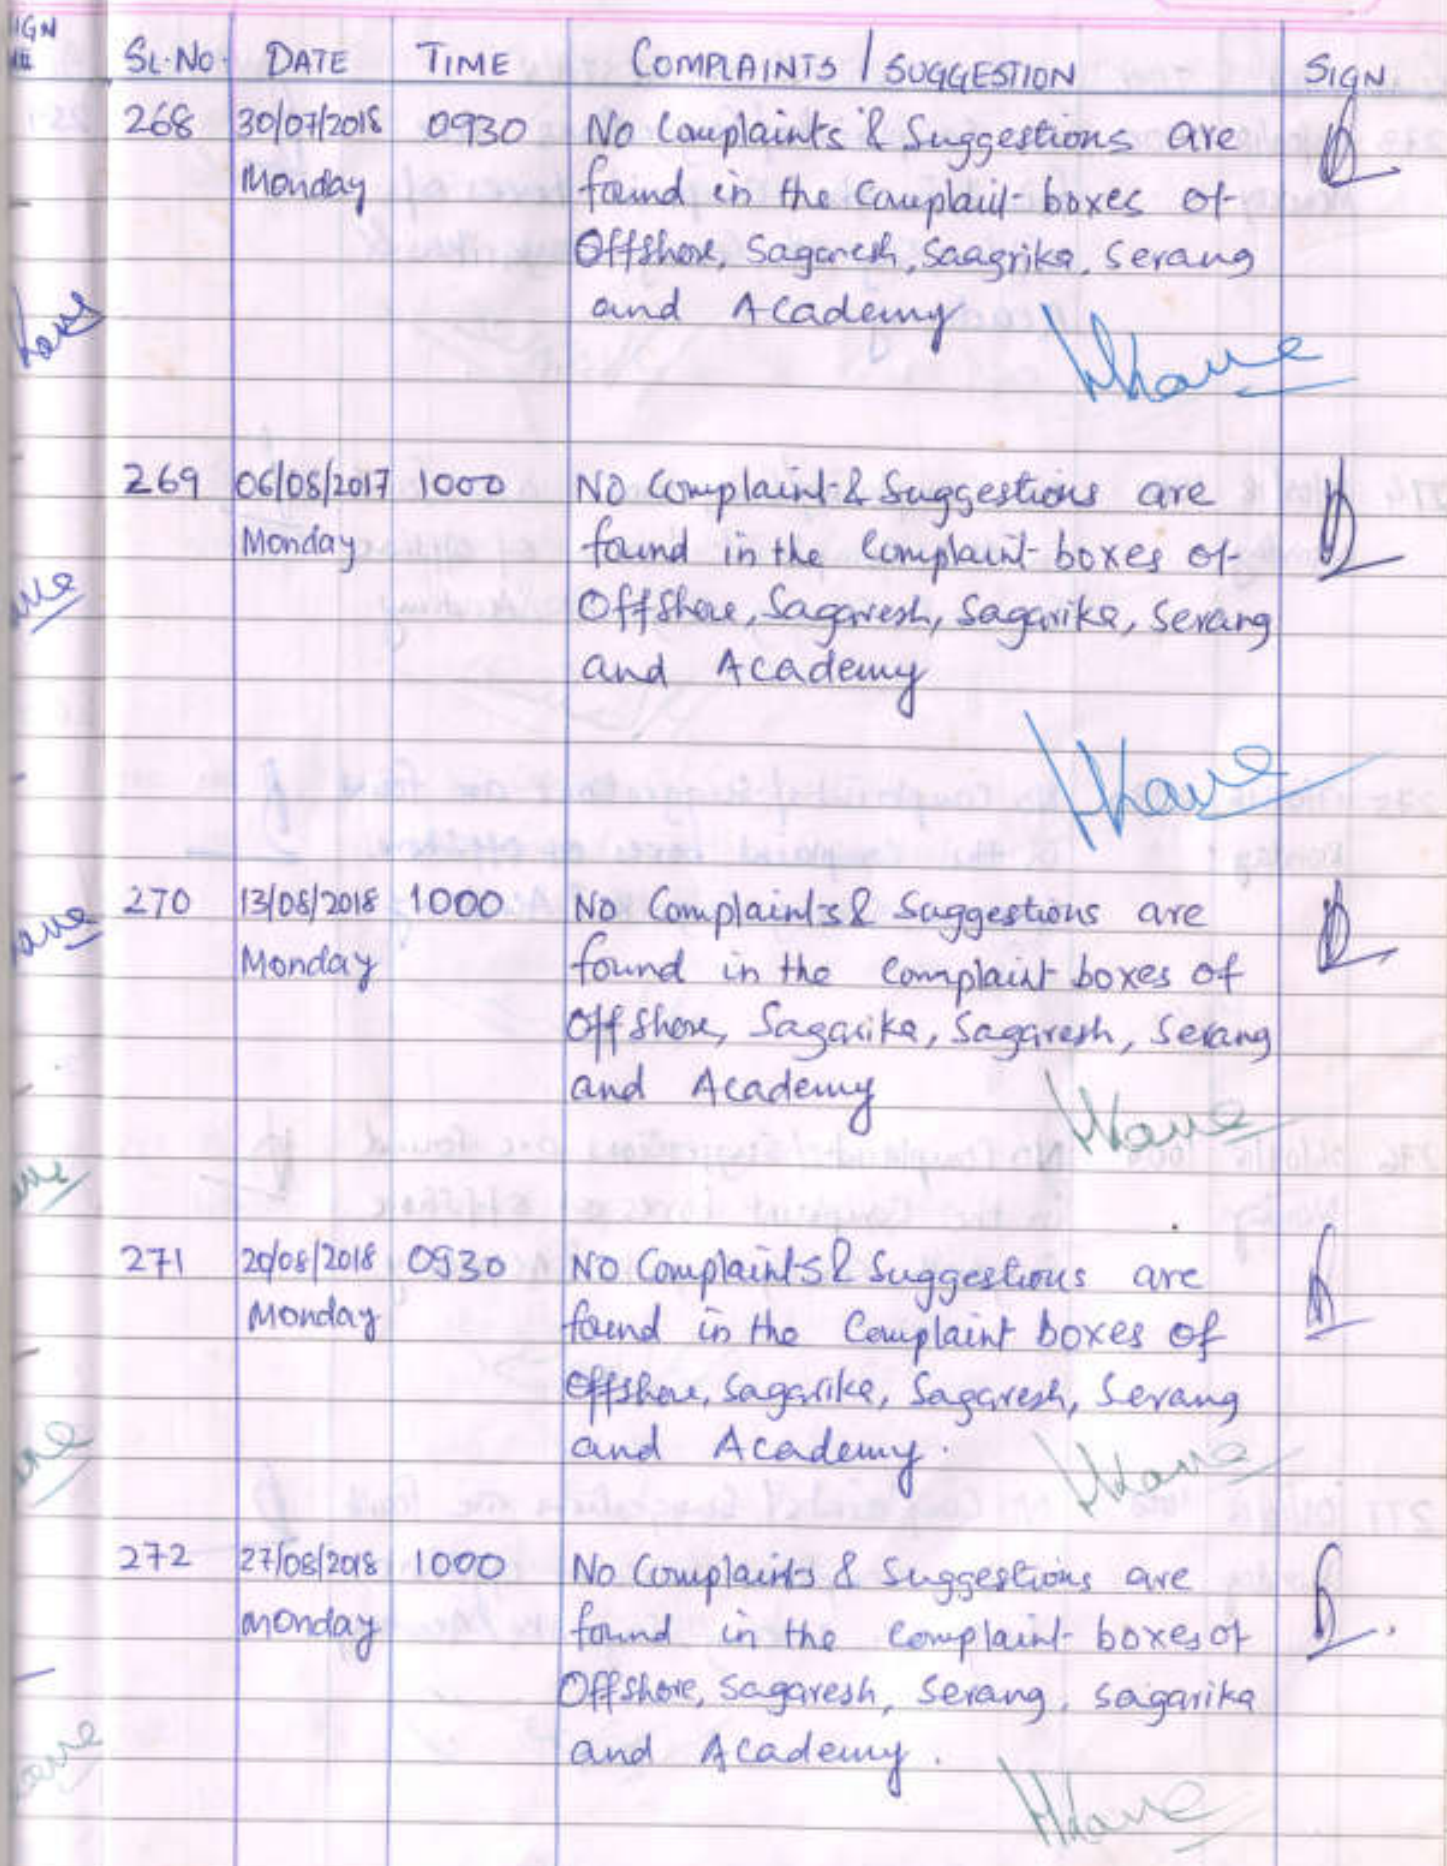 SL.NO. DATE TIME COMPLAINTS / SUGGESTION SIGN
268 30/07/2018 0930 No Complaints & Suggestions are
Monday found in the Complaint boxes of
Offshore, Sagaresh, Saagrika, Serang
and Academy
269 06/08/2017 1000 No Complaint & Suggestions are
Monday found in the Complaint boxes of
Offshore, Sagaresh, Sagarika, Serang
and Academy
270 13/08/2018 1000 No Complaints & Suggestions are
Monday found in the Complaint boxes of
Offshore, Sagarika, Sagaresh, Serang
and Academy
271 20/08/2018 0930 No Complaints & Suggestions are
Monday found in the Complaint boxes of
Offshore, Sagarika, Sagaresh, Serang
and Academy.
272 27/08/2018 1000 No Complaints & Suggestions are
Monday found in the Complaint boxes of
Offshore, Sagaresh, Serang, Sagarika
and Academy.